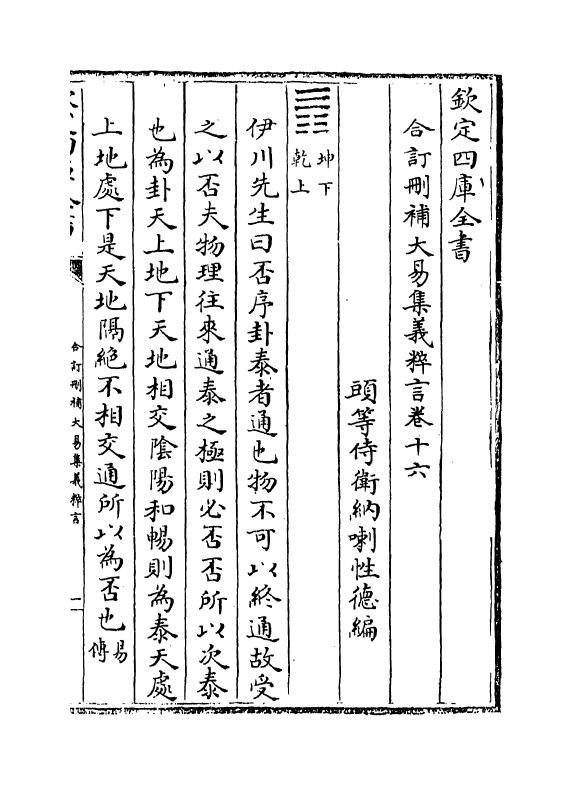 欽定四庫全書
合訂刪補大易集義粹言卷十六
頭等侍衛納喇性德編
坤下
乾上
伊川先生曰否序卦泰者通也物不可以終通故受
之以否夫物理往來通泰之極則必否否所以次泰
也為卦天上地下天地相交隂陽和暢則為泰天處
上地處下是天地隔絶不相交通所以為否也易
傳
合訂刪補大易集義粹言
一